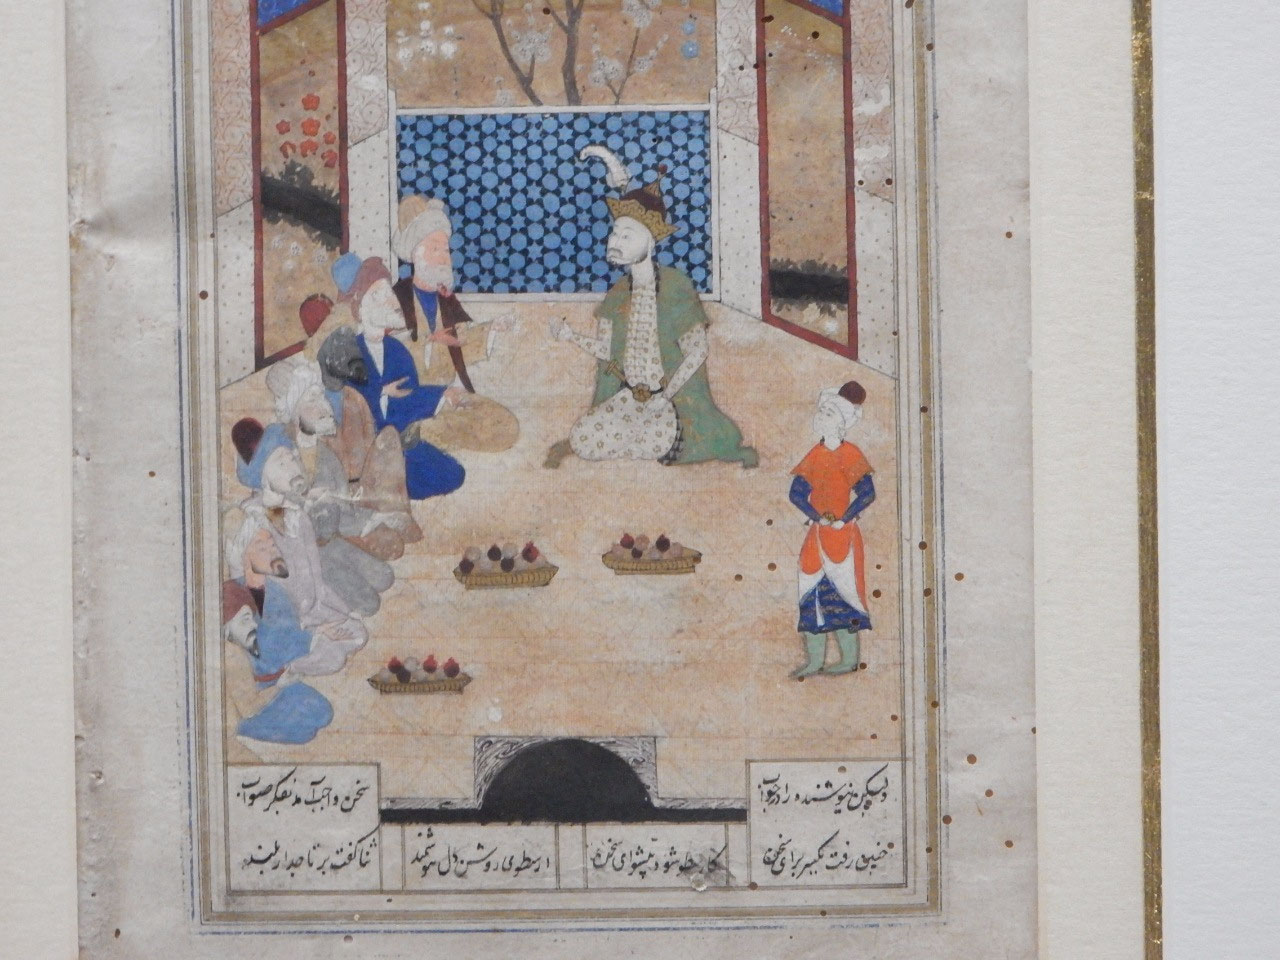 ولیکن نیوشنده را در جواب سخن واجب آمد بفکر صواب
چنین رفت یکسر برای سخن کارسطو شود پیشوای سخن ارسطوی روشن دل هوشمند ثنا گفت بر تاجدار بلند